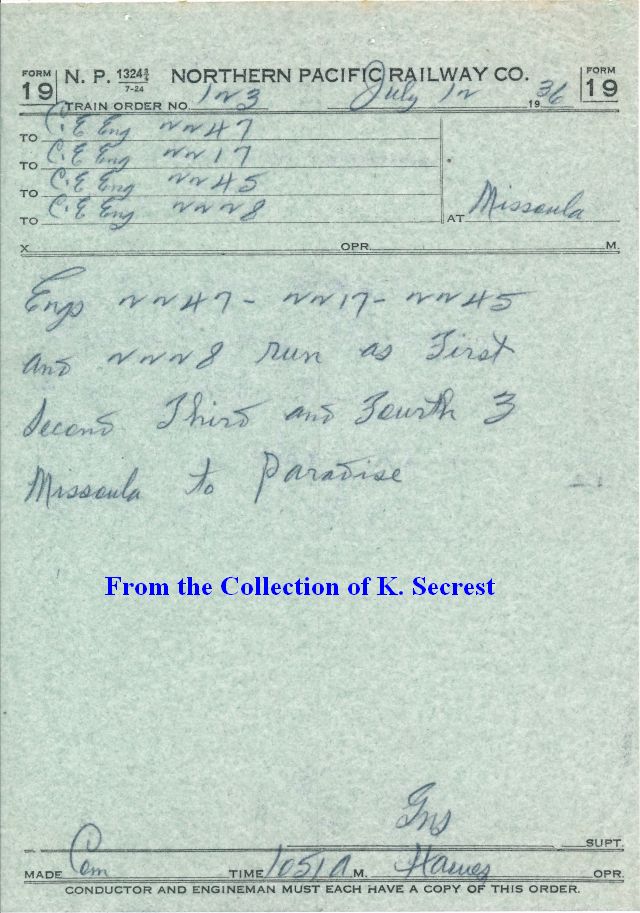 FORM 19 N. P. 1324¾ 7-24 NORTHERN PACIFIC RAILWAY CO. FORM 19
TRAIN ORDER NO. 123 July 12 1936
TO C. & E Eng 2247
TO C. & E Eng 2217
TO C. & E Eng 2245
TO C. & E Eng 2228 AT Missoula
X OPR. M.
Engs 2247 - 2217 - 2245
and 2228 run as First
Second Third and Fourth 3
Missoula to Paradise
From the Collection of K. Secrest
SUPT.
MADE Com TIME 1051 A M. OPR.
CONDUCTOR AND ENGINEMAN MUST EACH HAVE A COPY OF THIS ORDER.